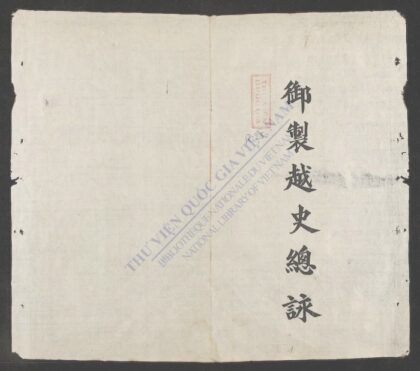 御製越史總詠
THƯ VIỆN QUỐC GIA VIỆT NAM
BIBLIOTHÈQUE NATIONALE DU VIETNAM
NATIONAL LIBRARY OF VIETNAM